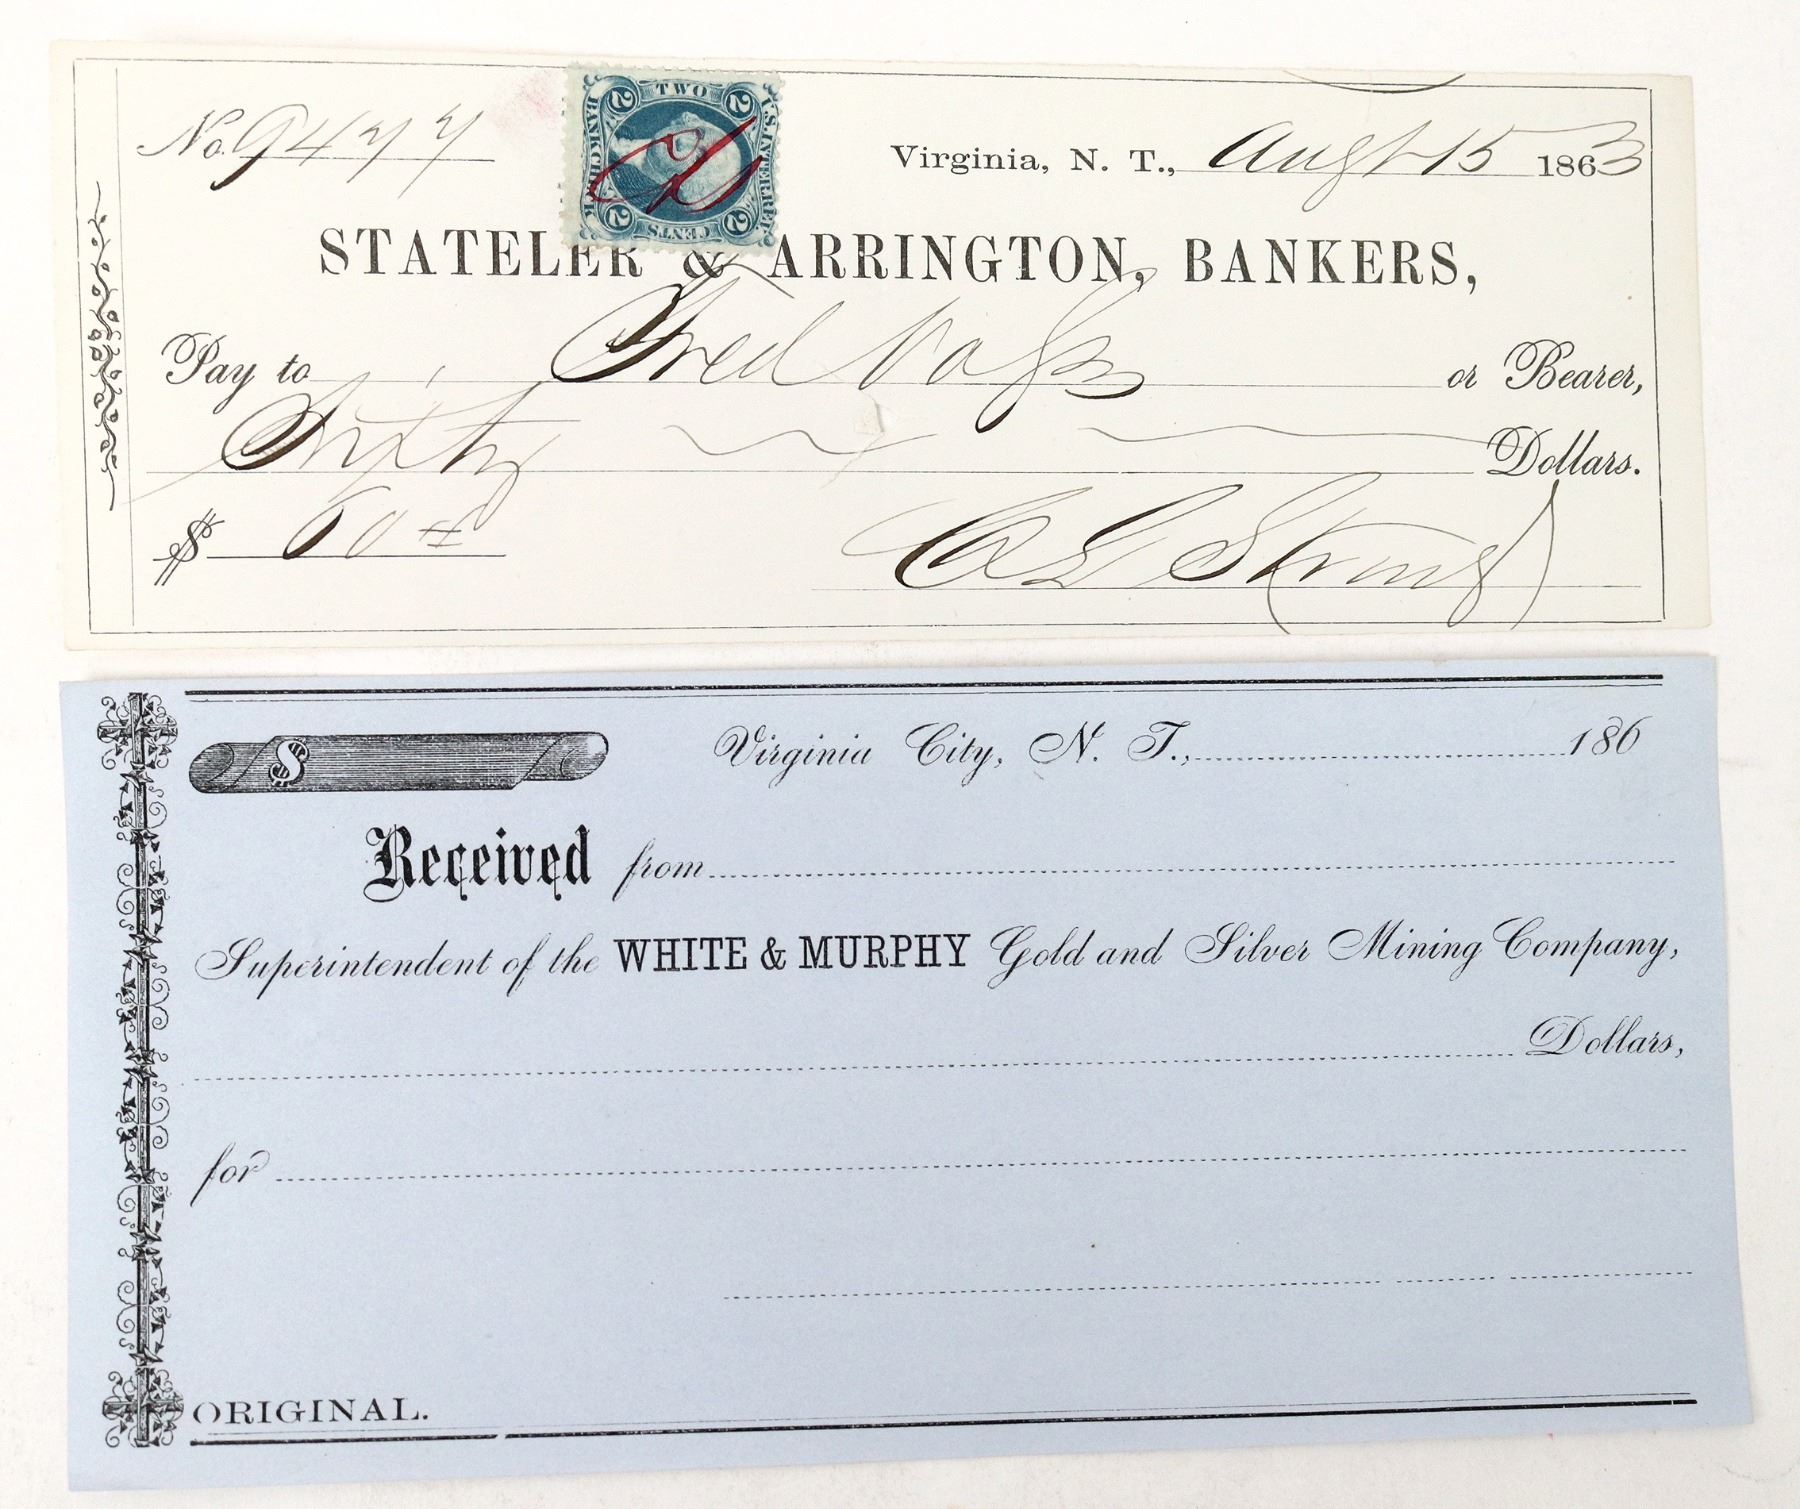 No. 9477
TWO
2 2
U.S. INTER. REV.
BANK CHECK
2 2
CENTS
Virginia, N. T., Augt 15 1863
STATELER & ARRINGTON, BANKERS,
Pay to Fred or Bearer,
Sixty Dollars.
$ 60
C L Strong
$ Virginia City, N. T., 186
Received from
Superintendent of the WHITE & MURPHY Gold and Silver Mining Company,
Dollars,
for
ORIGINAL.